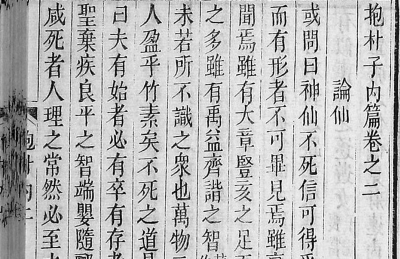 抱朴子內篇卷之二
論仙
或問曰神仙不死信可得
而有形者不可畢見焉雖
聞焉雖有大章豎亥之足
之多雖有禹益齊諧之智
未若所不識之衆也萬物
人盈乎竹素矣不死之道
曰夫有始者必有卒有存
聖棄疾良平之智端嬰隨
咸死者人理之常然必至